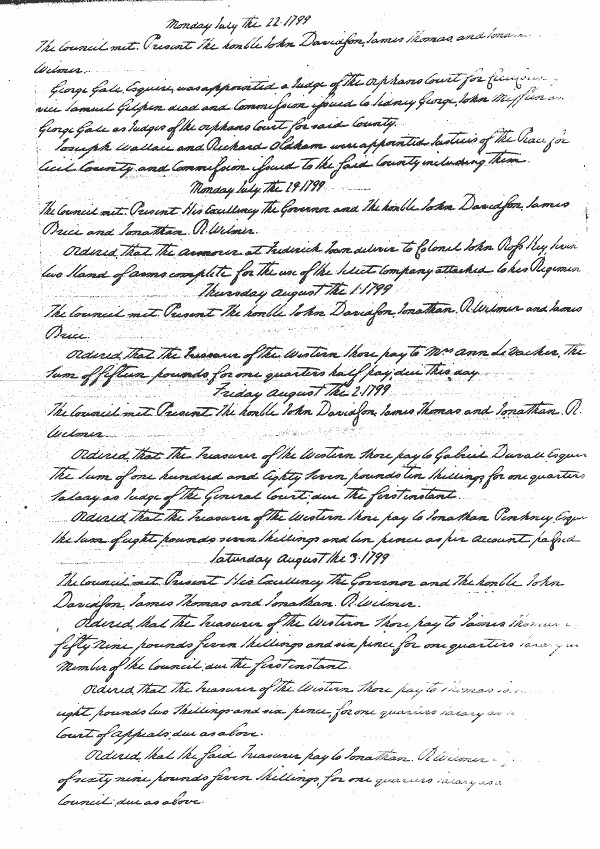 Monday July the 22. 1799
The Council met. Present The honble John Davidson, James Thomas, and Jona
Wilmer.
George Gale Esquire, was appointed a Judge of the Orphans Court for
vice Samuel Gilpin dead and Commission issued to Sidney George, John
George Gale as Judges of the Orphans Court for said County.
Joseph Wallace and Richard Oldham were appointed Justices of the Peace for
Cecil County and Commission issued to the said County including them.
Monday July the 29. 1799
The Council met. Present His Excellency the Governor and The honble John Davidson, James
Brice and Jonathan R. Wilmer.
Ordered that the Armourer at Frederick Town deliver to Colonel John Ross Key
two Stand of arms complete for the use of the Select Company attached to his
Thursday August the 1. 1799
The Council met. Present The honble John Davidson, Jonathan R. Wilmer and James
Brice.
Ordered, that the Treasurer of the Western Shore pay to Mrs Ann Le Vacher, the
Sum of fifteen pounds for one quarters half pay, due this day
Friday August the 2. 1799
The Council met. Present The honble John Davidson, James Thomas and Jonathan R.
Wilmer.
Ordered, that the Treasurer of the Western Shore pay to Gabriel Duvall
the Sum of one hundred and Eighty Seven pounds ten Shillings for one quarters
Salary as Judge of the General Court; due the first instant.
Ordered, that the Treasurer of the Western Shore pay to Jonathan Pinkney
the Sum of eight pounds seven Shillings and ten pence as per Account, passed
Saturday August the 3. 1799
The Council met. Present His Excellency the Governor and The honble John
Davidson, James Thomas and Jonathan R. Wilmer.
Ordered, that the Treasurer of the Western Shore pay to James Thomas
fifty Nine pounds Seven Shillings and six pence for one quarters salary as
Member of the Council, due the first instant.
Ordered, that the Treasurer of the Western Shore pay to Thomas
eight pounds two Shillings and six pence, for one quarters salary as
Court of Appeals; due as above.
Ordered, that the said Treasurer pay to Jonathan R Wilmer
of sixty nine pounds Seven Shillings, for one quarters salary as a
Council; due as above.